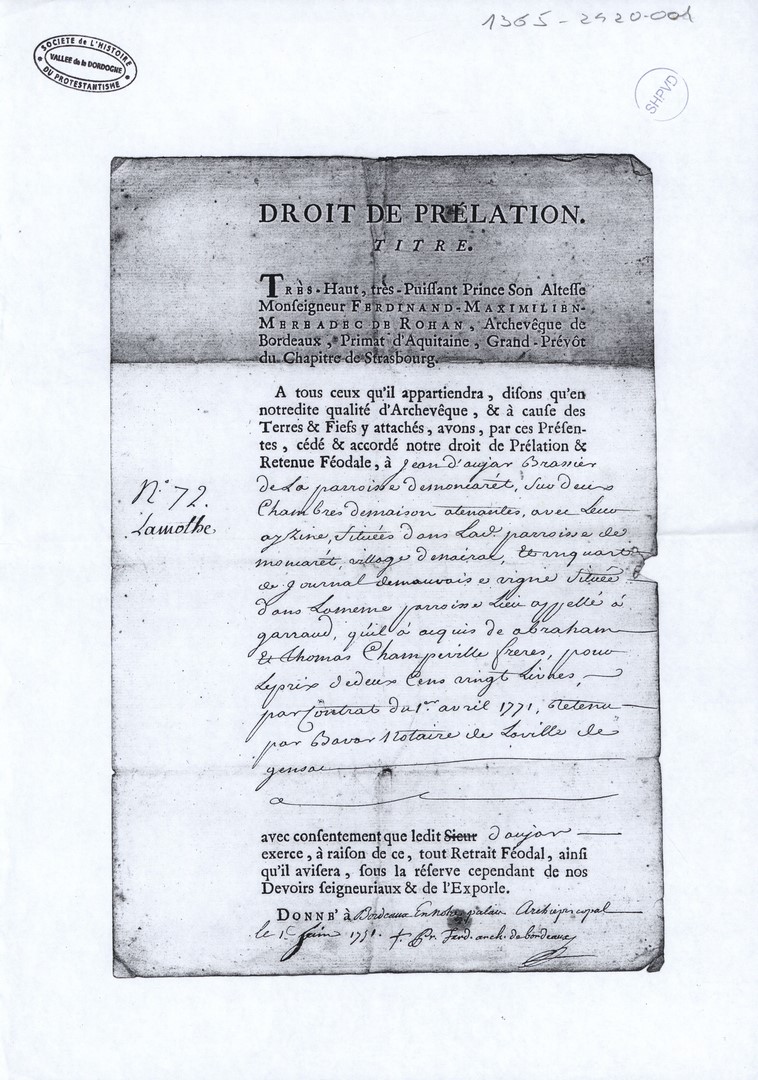 1365-2920-001
SOCIETE de L'HISTOIRE
VALLEE de la DORDOGNE
DU PROTESTANTISME
SHPVD
DROIT DE PRÉLATION.
TITRE.
TRÈS-Haut, très-Puiſſant Prince Son Alteſſe
Monſeigneur FERDINAND-MAXIMILIEN-
MEREADEC DE ROHAN, Archevêque de
Bordeaux, Primat d'Aquitaine, Grand-Prévôt
du Chapitre de Strasbourg.
A tous ceux qu'il appartiendra, diſons qu'en
notredite qualité d'Archevêque, & à cauſe des
Terres & Fiefs y attachés, avons, par ces Préſen-
tes, cédé & accordé notre droit de Prélation &
Retenue Féodale, à Jean d'aujar Brassier
N.° 72.
Lamothe
de La parroisse demoncarét, Sur deux
Chambres demaison atenantes, avec Leur
ayzine, Situées dans Lad. parroisse de
moncarét, village denairac, Et un quart
de Journal demauvaise vigne Située
dans Lameme parroisse Lieu appellé à
garraud, qu'il à acquis de abraham
Et thomas Champerville freres, pour
Leprix dedeux Cens vingt Livres,
par Contrat du 1.er avril 1771, Retenu
par Bavar Notaire de Laville de
gensac
avec conſentement que ledit Sieur d'aujar
exerce, à raiſon de ce, tout Retrait Féodal, ainſi
qu'il aviſera, ſous la réſerve cependant de nos
Devoirs ſeigneuriaux & de l'Exporle.
DONNE' à Bordeaux En notre palais Archiepiscopal
le 1.er Juin 1781. + Pr. Ferd. arch. de bordeaux